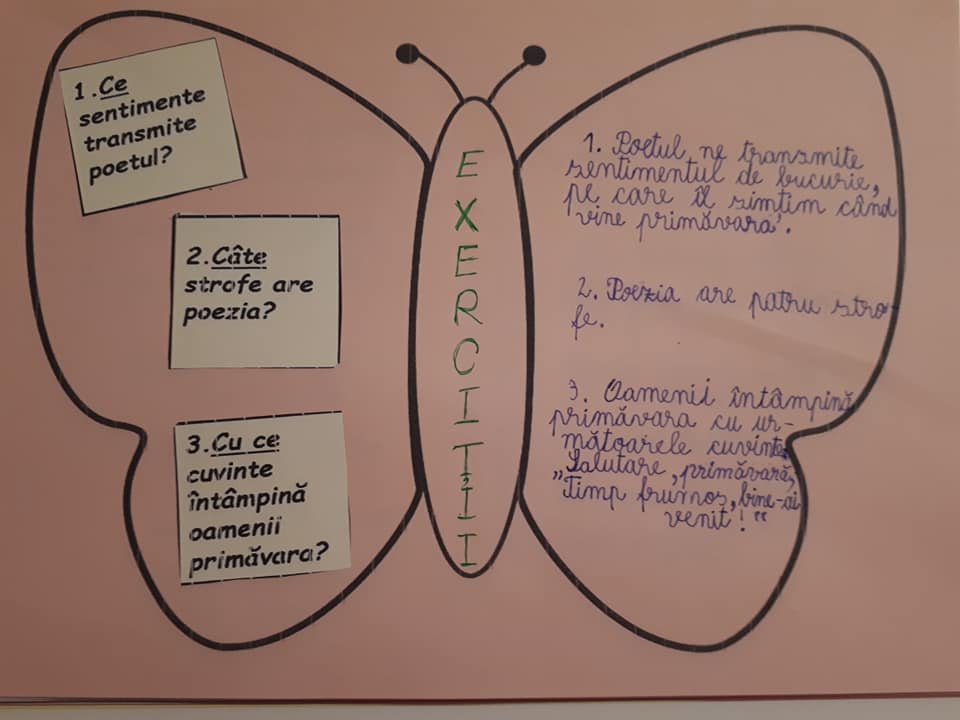 1.Ce
sentimente
transmite
poetul?
2.Câte
strofe are
poezia?
3.Cu ce
cuvinte
întâmpină
oamenii
primăvara?
EXERCIȚII
1. Poetul ne transmite
sentimentul de bucurie,
pe care îl simțim când
vine primăvara.
2. Poezia are patru stro-
fe.
3. Oamenii întâmpină
primăvara cu ur-
mătoarele cuvinte:
Salutare, primăvară,
"Timp frumos, bine-ai
venit!"